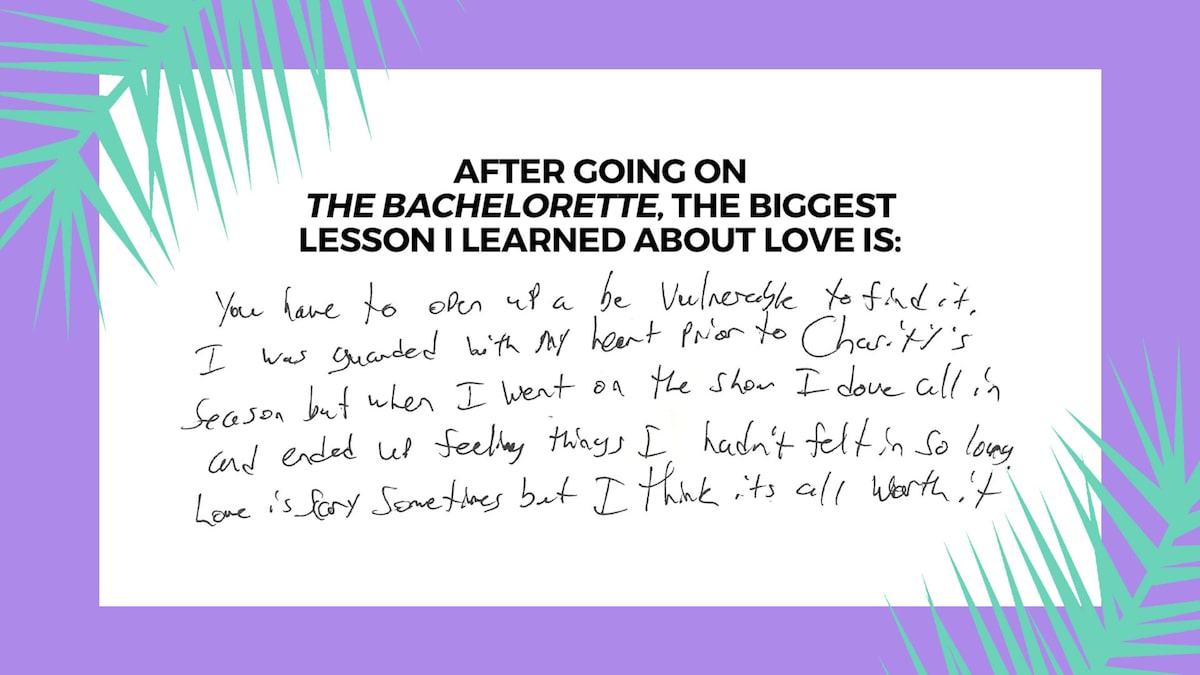 AFTER GOING ON
THE BACHELORETTE, THE BIGGEST
LESSON I LEARNED ABOUT LOVE IS:
You have to open up a be Vulnerable to find it.
I was guarded with my heart prior to Charity's
Season but when I went on the show I dove all in
and ended up feeling things I hadn't felt in so long.
Love is scary sometimes but I think its all worth it